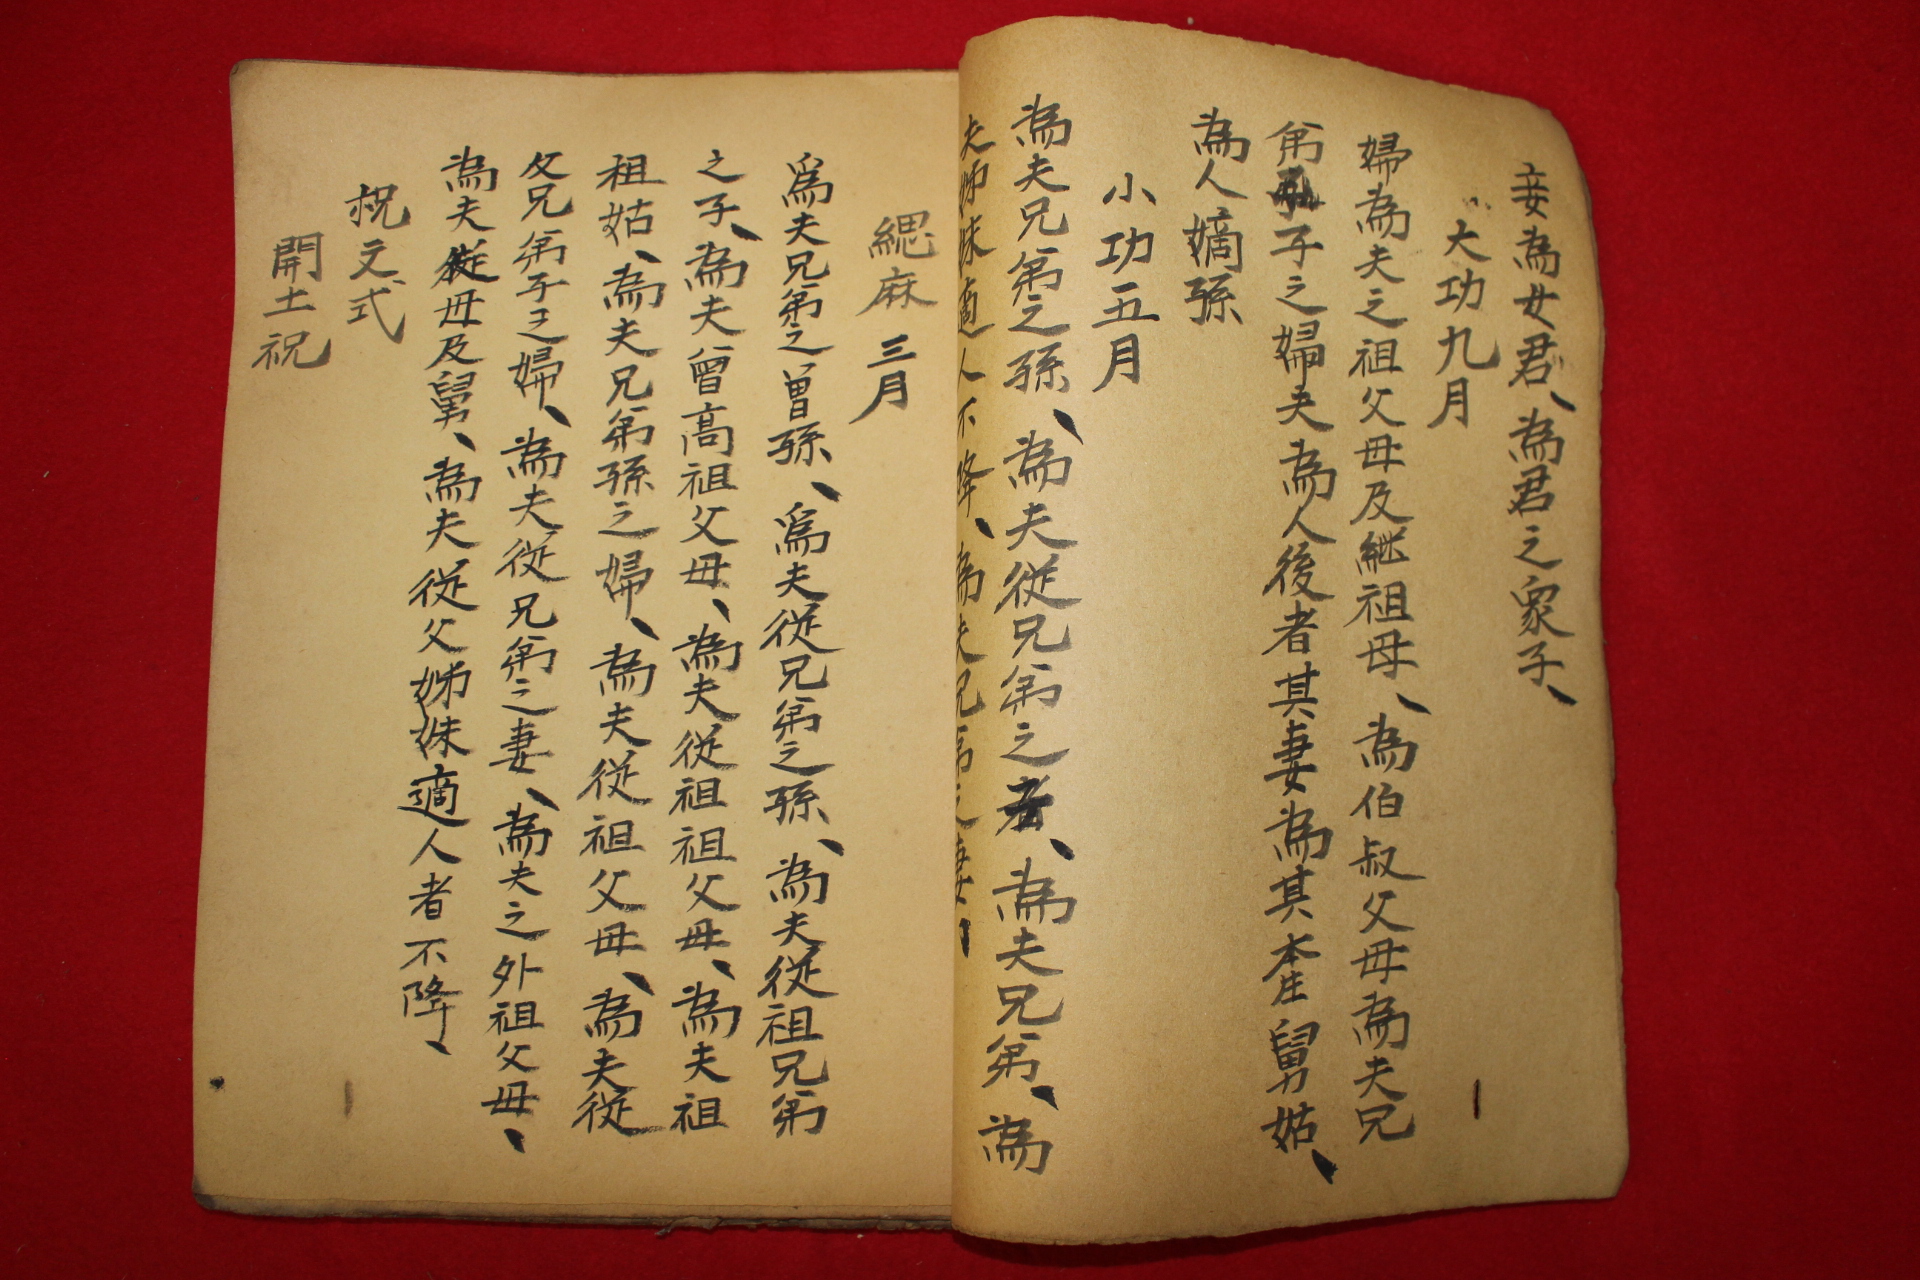 妾為女君、為君之衆子、
大功九月
婦為夫之祖父母及継祖母、為伯叔父母為夫兄
弟子之婦夫為人後者其妻為其本生舅姑、
為人嫡孫
小功五月
為夫兄弟之孫、為夫従兄弟之者、為夫兄弟、為
夫姊妹適人不降、為夫兄弟之妻
緦麻三月
爲夫兄弟之曽孫、爲夫従兄弟之孫、為夫従祖兄弟
之子、為夫曾高祖父母、為夫従祖祖父母、為夫祖
祖姑、為夫兄弟孫之婦、為夫従祖父母、為夫従
父兄弟子之婦、為夫従兄弟之妻、為夫之外祖父母、
為夫従母及舅、為夫従父姊妹適人者不降、
祝文式
開土祝